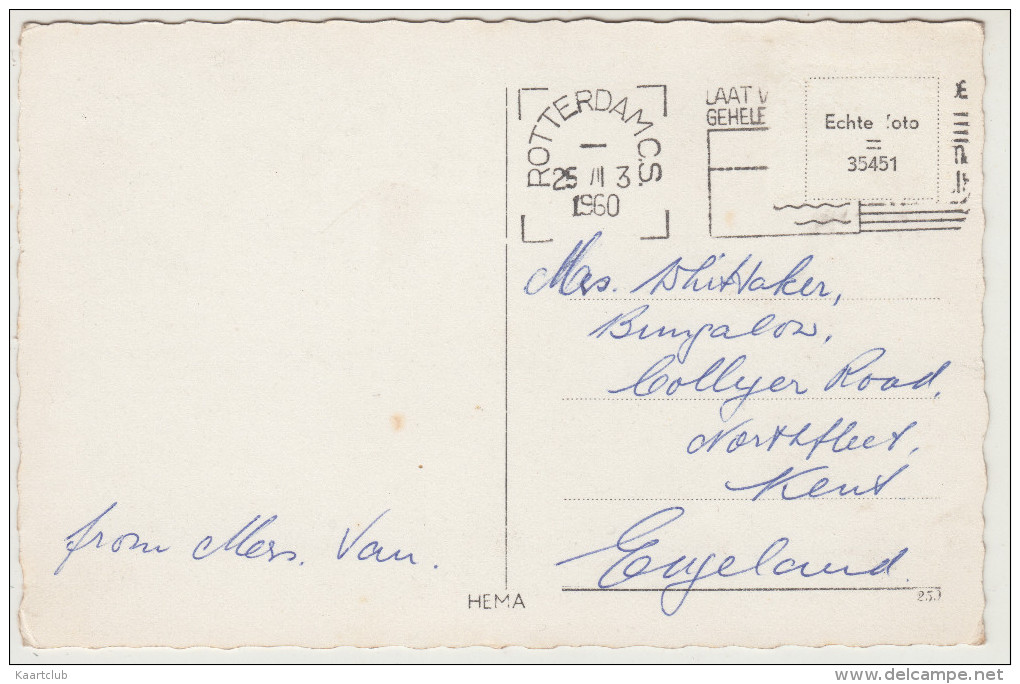 ROTTERDAM C.S.
25 III 3
1960
LAAT V
GEHELE
Echte foto
=
35451
Mrs. Whittaker,
Bungalow,
Collyer Road,
Northfleet,
Kent
Engeland.
from Mrs. Van.
HEMA
Kaartclub
delcampe.net